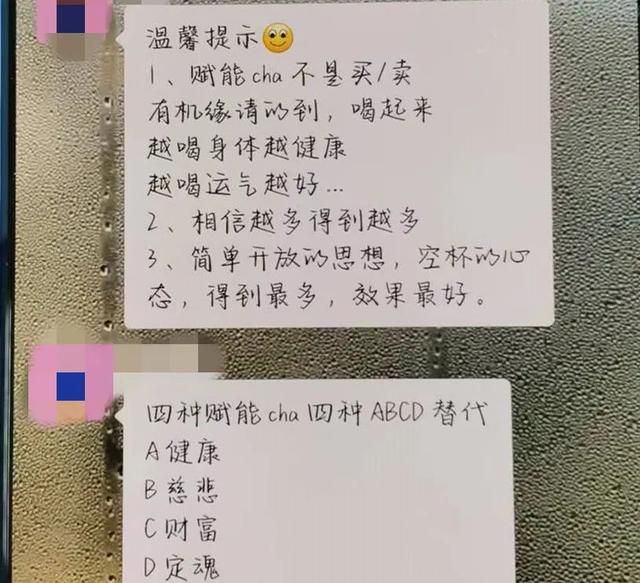 温馨提示
1、赋能cha不是买/卖
有机缘请的到，喝起来
越喝身体越健康
越喝运气越好...
2、相信越多得到越多
3、简单开放的思想，空杯的心
态，得到最多，效果最好。
四种赋能cha四种ABCD替代
A健康
B慈悲
C财富
D定魂